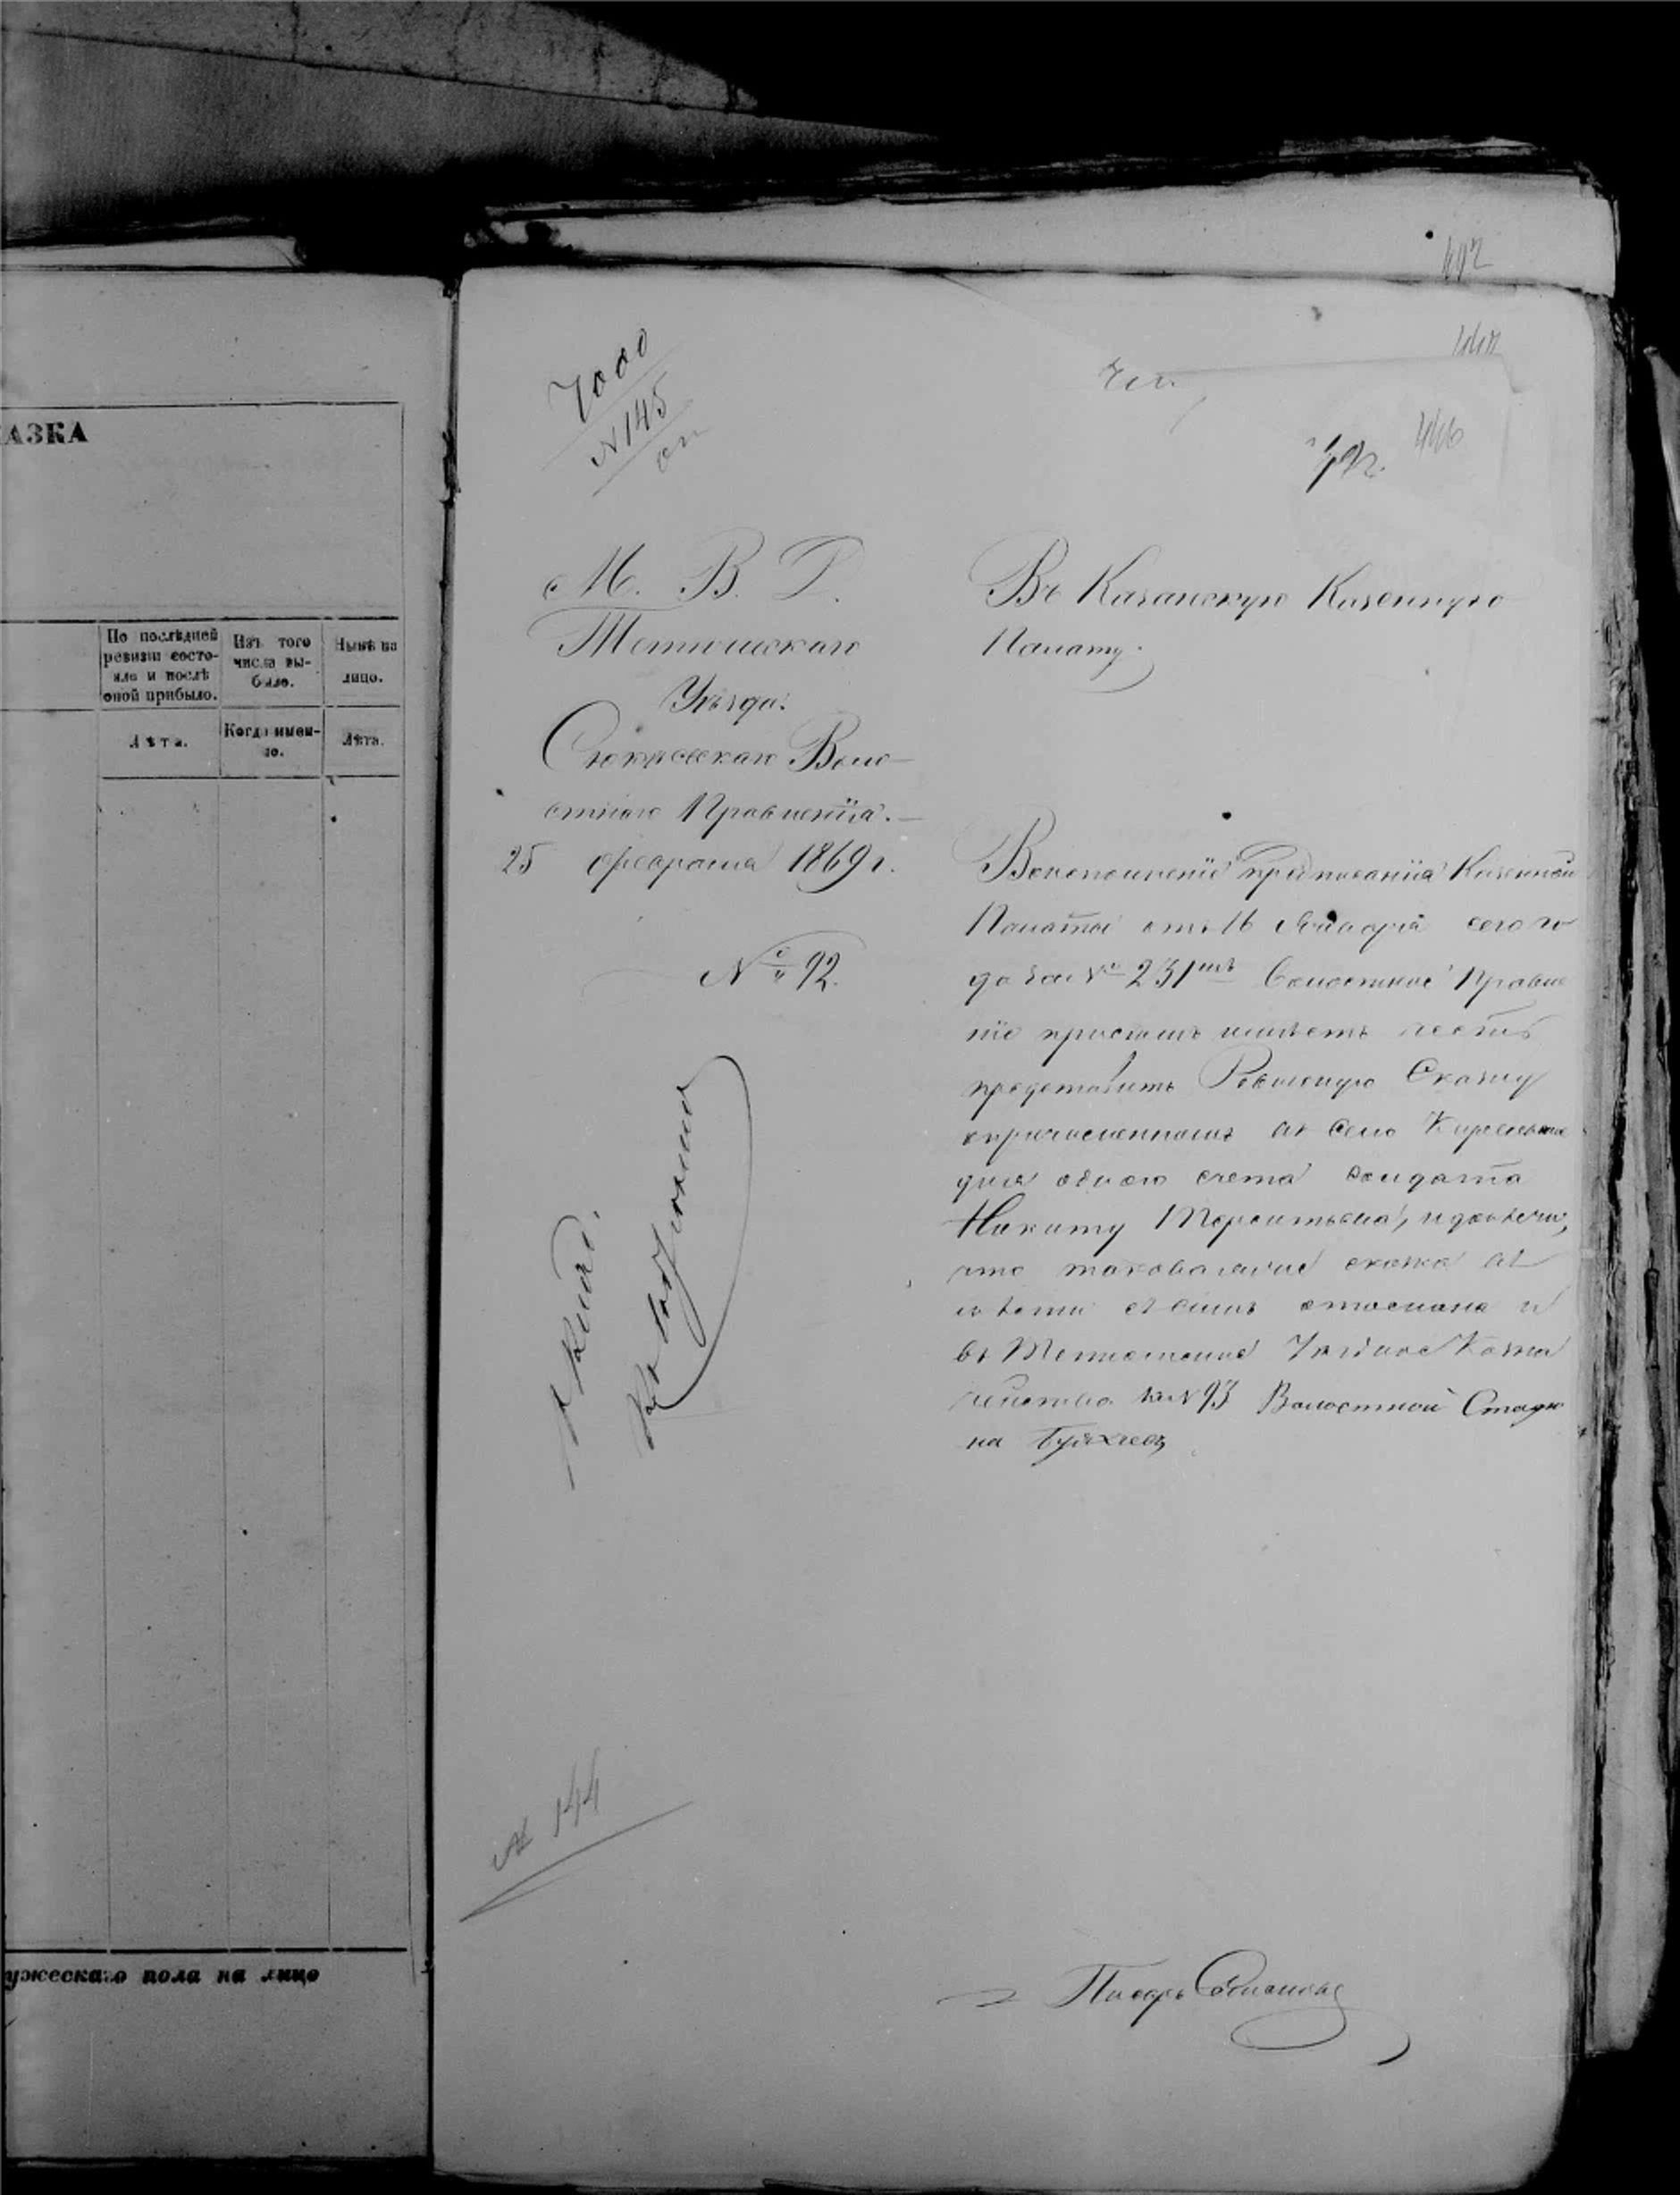 АЗКА
По послѣдней
ревизіи состо-
яло и послѣ
оной прибыло.
Изъ того
числа вы-
было.
Нынѣ на
лицо.
Лѣта.
Когда имен-
но.
Лѣта.
ужескаго пола на лицо
7000
№ 145
М. В. Д.
Тетюшскаго
Уѣзда.
Сюкѣевскаго Воло-
стнаго Правленія.
25 февраля 1869 г.
№ 92.
№ 144
Въ Казанскую Казенную
Палату.
Воисполненіе предписанія Казенной
Палаты отъ 16 Января сего го
да за № 231мъ Волостное Правле
ніе присемъ имѣетъ честь
представить Ревизскую Сказку
опричисленномъ въ Село
для одного счета Солдата
Никиту Терентьева,
что таковая же сказка
отослана и
въ Тетюшское Уѣздное Казна
чейство за № 93 Волостной Стар
на
Писарь